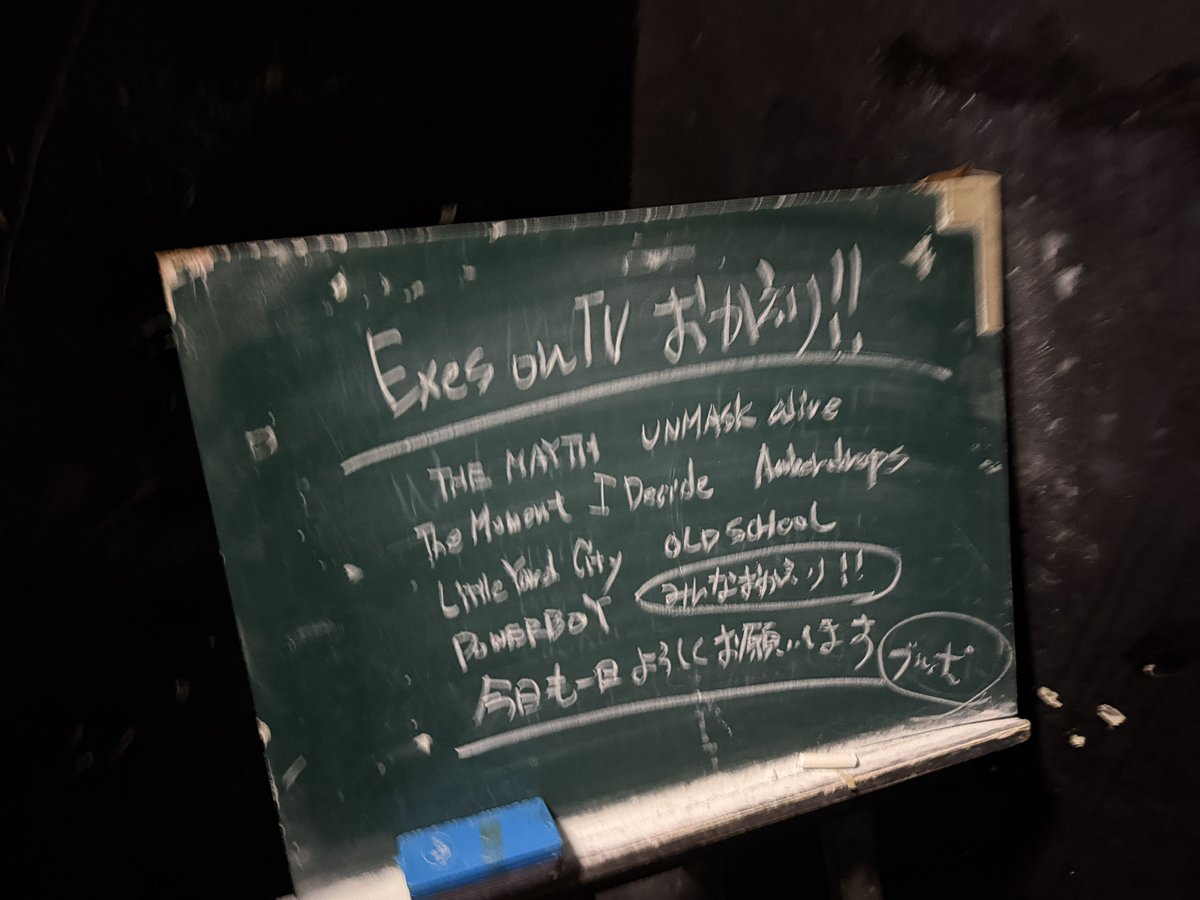 Exes on TV おかえり!!
THE MAYTH UNMASK alive
The Moment I Decide Amberdrops
Little Yard City OLD SCHOOL
POWERBOY みんなおかえり!!
今日も一日よろしくお願いします